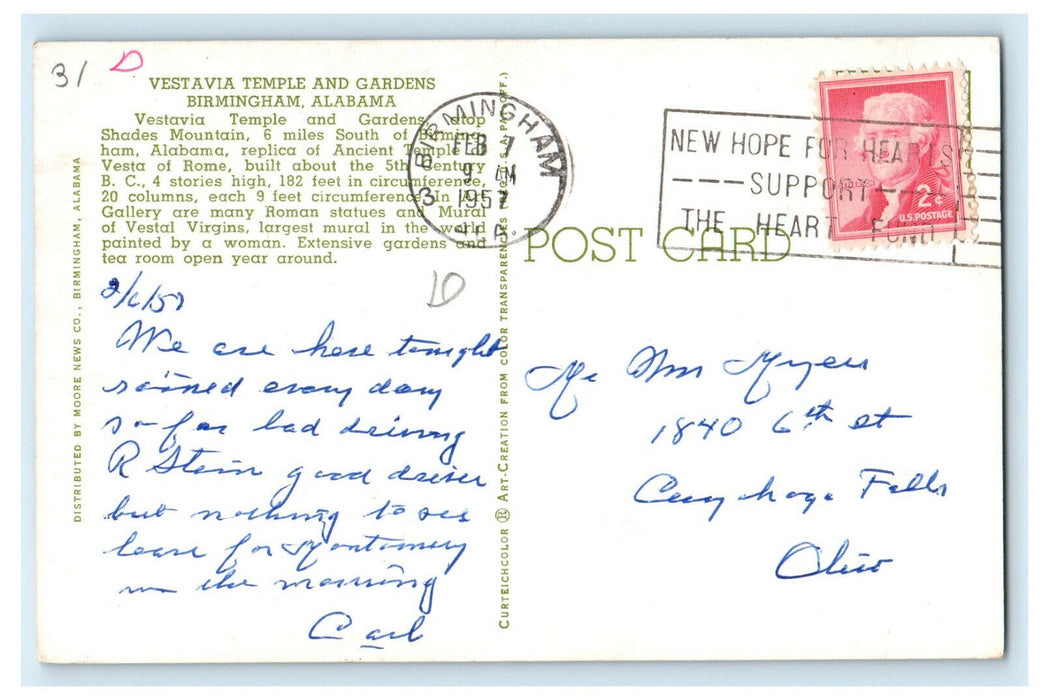 31
D
VESTAVIA TEMPLE AND GARDENS
BIRMINGHAM, ALABAMA
Vestavia Temple and Gardens atop
Shades Mountain, 6 miles South of Birming-
ham, Alabama, replica of Ancient Temple
Vesta of Rome, built about the 5th Century
B. C., 4 stories high, 182 feet in circumference,
20 columns, each 9 feet circumference. In
Gallery are many Roman statues and Mural
of Vestal Virgins, largest mural in the world
painted by a woman. Extensive gardens and
tea room open year around.
BIRMINGHAM
3
FEB 7
9 AM
1957
ALA.
NEW HOPE FOR HEARTS
SUPPORT
THE HEART FUND
2¢
U.S. POSTAGE
POST CARD
D
2/6/57
We are here tonight
rained every day
so far bad driving
R Stein good driver
but nothing to see
leave for Montgomery
in the morning
Carl
Mr Wm Myers
1840 6th st
Cuyhoga Falls
Ohio
DISTRIBUTED BY MOORE NEWS CO., BIRMINGHAM, ALABAMA
CURTEICHCOLOR ® ART-CREATION FROM COLOR TRANSPARENCIES PAT. OFF.)